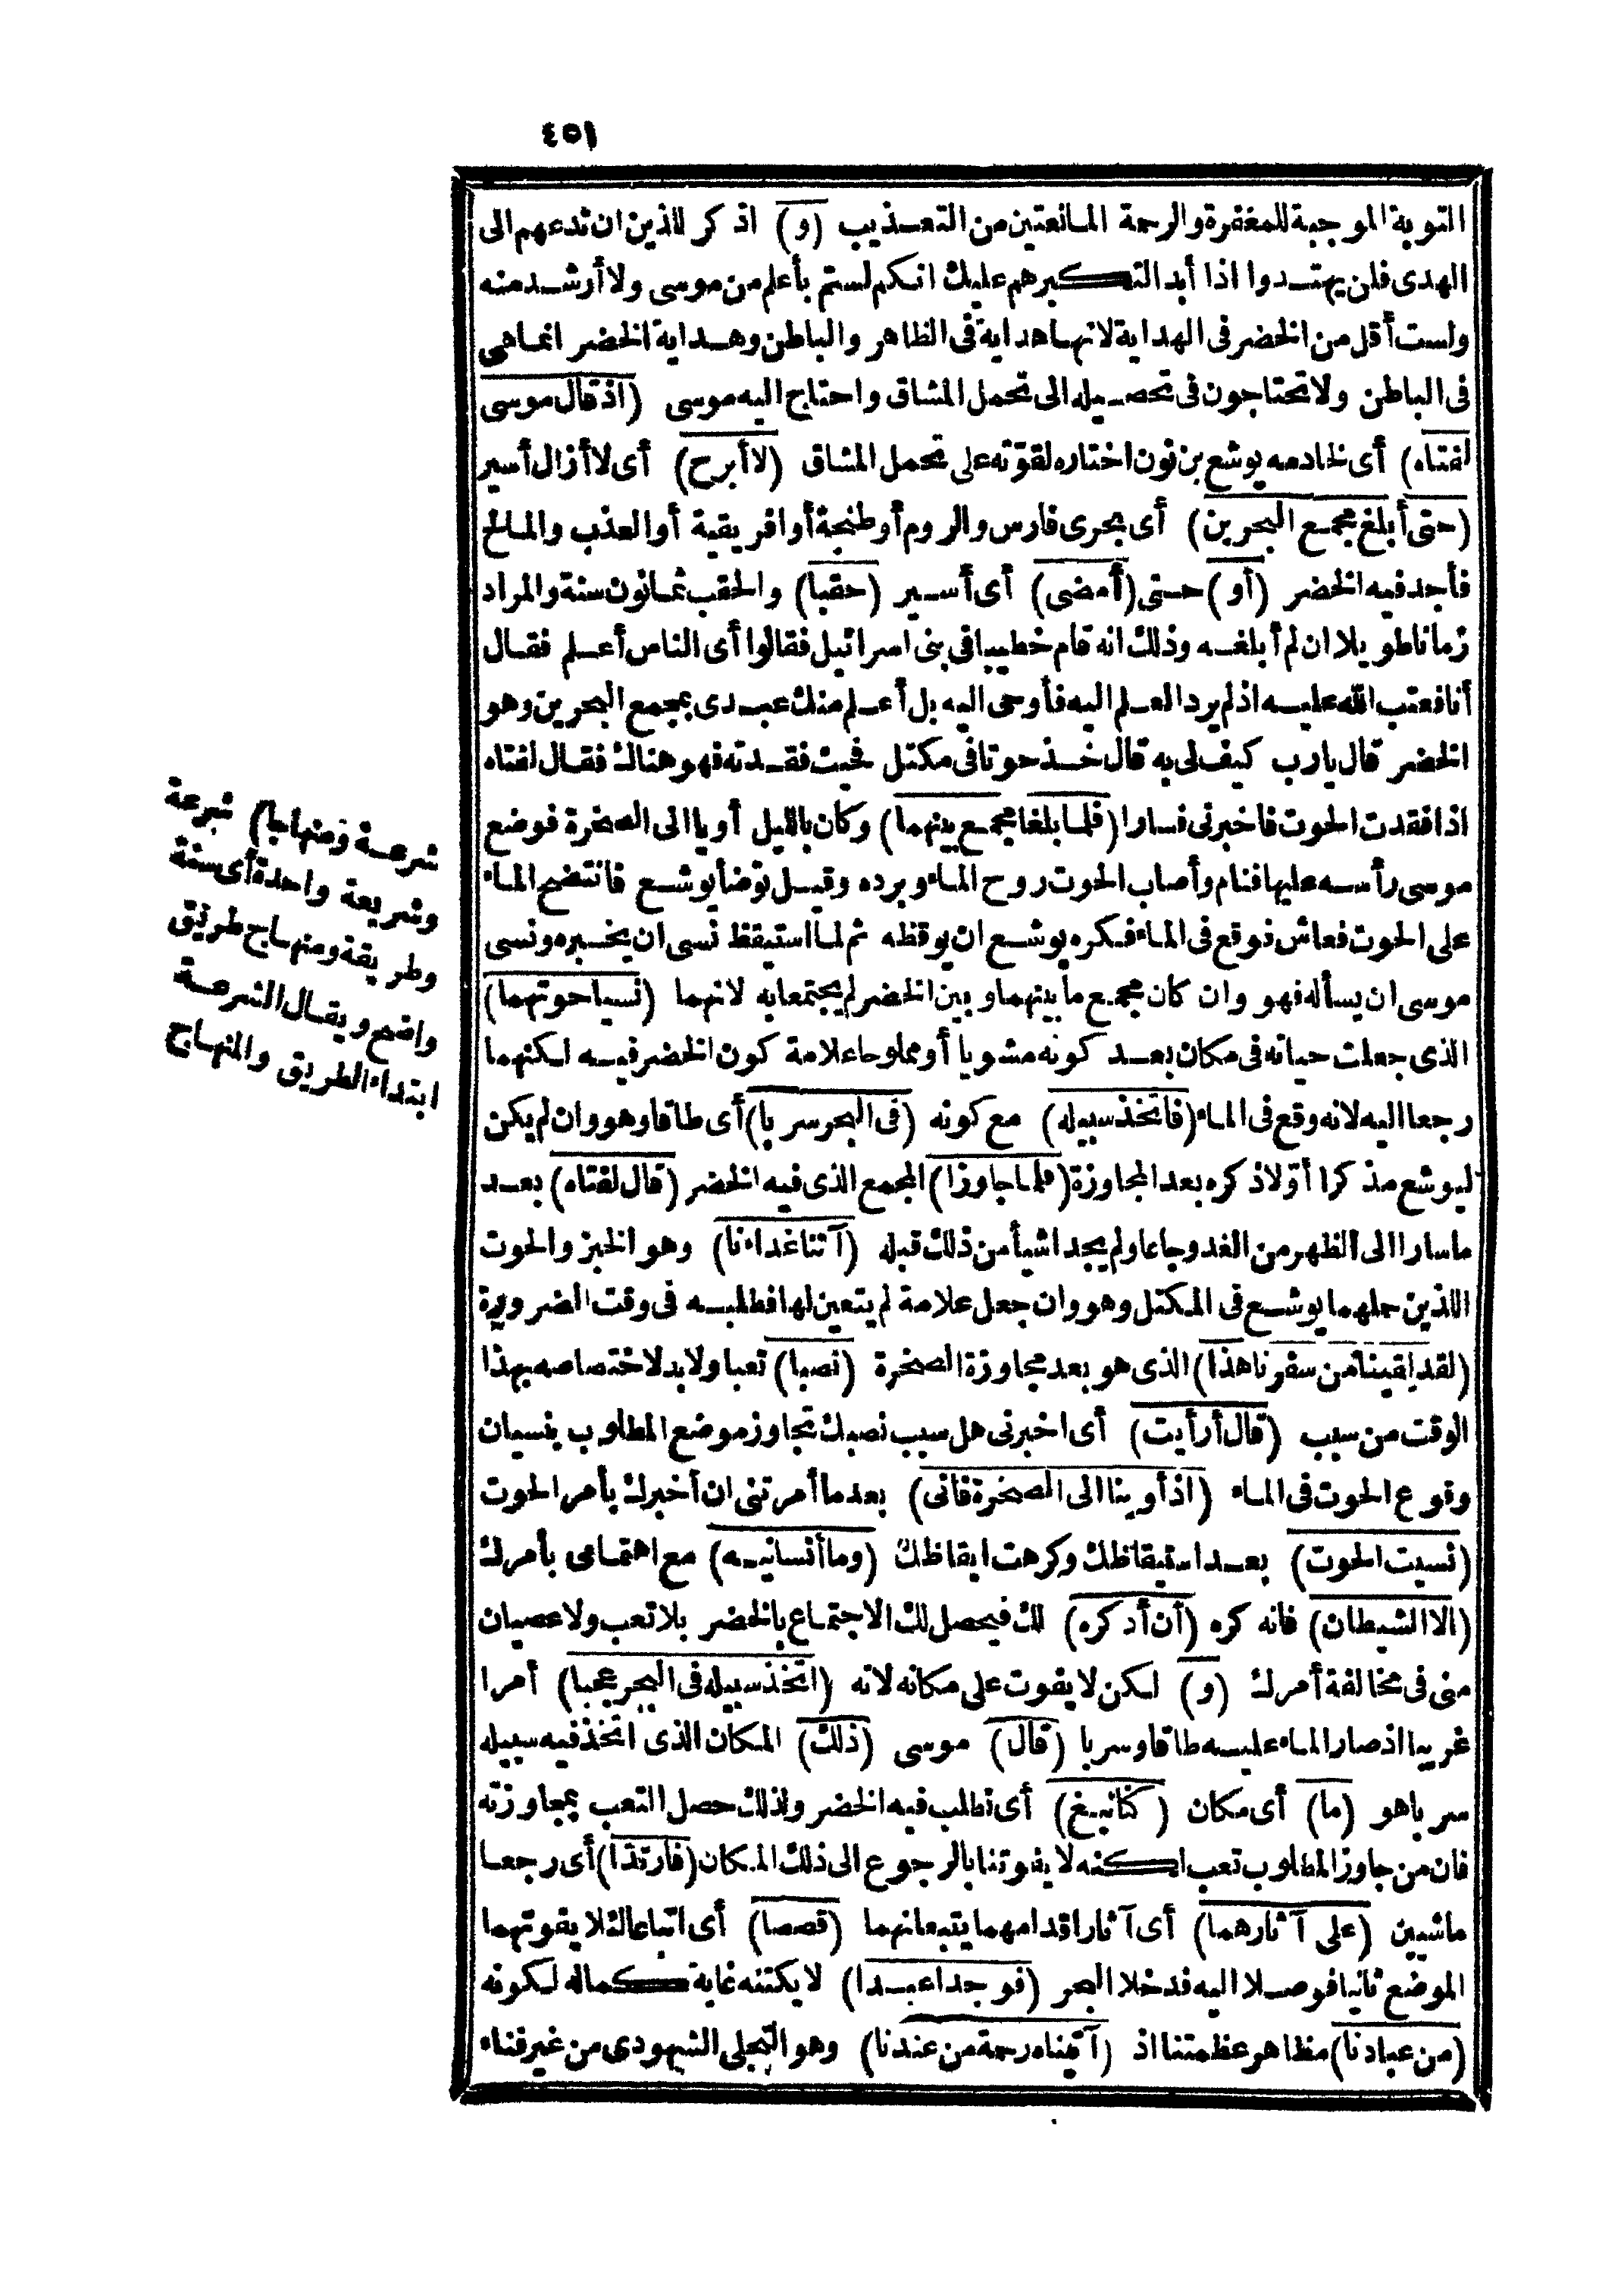 ٤٥١
التوبة الموجبة للمغفرة والرحمة المانعتين من التعذيب (و) اذ كر للذين ان تدعهم الى
الهدى فلن يهتدوا اذا أبدا لتكبرهم عليك انكم لستم بأعلم من موسى ولا أرشد منه
ولست أقل من الخضر فى الهداية لانها هداية فى الظاهر والباطن وهداية الخضر انما هى
فى الباطن ولا تحتاجون فى تحصيله الى تحمل المشاق واحتاج اليه موسى (اذ قال موسى
لفتاه) أى لخادمه يوشع بن نون اختاره لقوّته على تحمل المشاق (لا أبرح) أى لا أزال أسير
(حتى أبلغ مجمع البحرين) أى بحرى فارس والروم أو طنجة أو افريقية أو العذب والمالح
فأجد فيه الخضر (أو) حتى (أمضى) أى أسير (حقبا) والحقب ثمانون سنة والمراد
زمانا طويلا ان لم أبلغه وذلك انه قام خطيبا فى بنى اسرائيل فقالوا أى الناس أعلم فقال
أنا فعتب الله عليه اذ لم يرد العلم اليه فأوحى اليه بل أعلم منك عبدى بمجمع البحرين وهو
الخضر قال يارب كيف لى به قال خذ حوتا فى مكتل فحيث فقدته فهو هناك فقال لفتاه
اذا فقدت الحوت فاخبرنى فسارا (فلما بلغا مجمع بينهما) وكان بالليل أويا الى الصخرة فوضع
موسى رأسه عليها فنام وأصاب الحوت روح الماء وبرده وقيل توضأ يوشع فانتضح الماء
على الحوت فعاش فوقع فى الماء فكره يوشع ان يوقظه ثم لما استيقظ نسى ان يخبره ونسى
موسى ان يسأله فهو وان كان مجمع ما بينهما وبين الخضر لم يجتمعا به لانهما (نسيا حوتهما)
الذى جعلت حياته فى مكان بعد كونه مشويا أو مملوحا علامة كون الخضر فيه لكنهما
رجعا اليه لانه وقع فى الماء (فاتخذ سبيله) مع كونه (فى البحر سربا) أى طاقا وهو وان لم يكن
ليوشع مذكرا أوّلا ذكره بعد المجاوزة (فلما جاوزا) المجمع الذى فيه الخضر (قال لفتاه) بعد
ما سارا الى الظهر من الغد وجاعا ولم يجدا شيأ من ذلك قبله (آتنا غداءنا) وهو الخبز والحوت
اللذين حملهما يوشع فى المكتل وهو وان جعل علامة لم يتعين لها فطلبه فى وقت الضرورة
(لقد لقينا من سفرنا هذا) الذى هو بعد مجاوزة الصخرة (نصبا) تعبا ولا بد لاختصاصه بهذا
الوقت من سبب (قال أرأيت) أى اخبرنى هل سبب نصبك تجاوز موضع المطلوب بنسيان
وقوع الحوت فى الماء (اذ أوينا الى الصخرة فانى) بعد ما أمرتنى ان أخبرك بأمر الحوت
(نسيت الحوت) بعد استيقاظك وكرهت ايقاظك (وما أنسانيه) مع اهتمامى بأمرك
(الا الشيطان) فانه كره (أن أذكره) لك فيحصل لك الاجتماع بالخضر بلا تعب ولا عصيان
منى فى مخالفة أمرك (و) لكن لا يفوت على مكانه لانه (اتخذ سبيله فى البحر عجبا) أمرا
غريبا اذ صار الماء عليه طاقا وسربا (قال) موسى (ذلك) المكان الذى اتخذ فيه سبيله
سربا هو (ما) أى مكان (كنا نبغ) أى نطلب فيه الخضر ولذلك حصل التعب بمجاوزته
فان من جاوز المطلوب تعب لكنه لا يفوتنا بالرجوع الى ذلك المكان (فارتدّا) أى رجعا
ماشيين (على آثارهما) أى آثار اقدامهما يتبعانهما (قصصا) أى اتباعا لئلا يفوتهما
الموضع ثانيا فوصلا اليه فدخلا البحر (فوجدا عبدا) لا يكتنه غاية كماله لكونه
(من عبادنا) مظاهر عظمتنا اذ (آتيناه رحمة من عندنا) وهو التجلى الشهودى من غير فناء
شرعة ومنهاجا) شرعة
وشريعة واحدة أى سنة
وطريقة ومنهاج طريق
واضح ويقال الشرعة
ابتداء الطريق والمنهاج